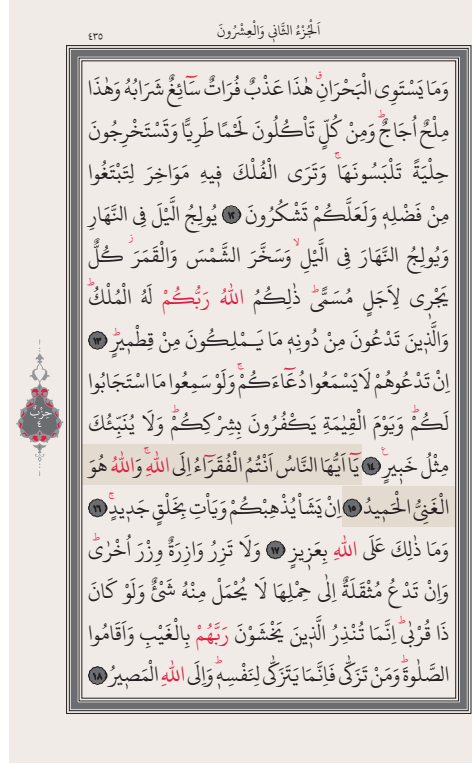 ٤٣٥
اَلْجُزْءُ الثَّانِي وَالْعِشْرُونَ
وَمَا يَسْتَوِى الْبَحْرَانِۗ هٰذَا عَذْبٌ فُرَاتٌ سَٓائِغٌ شَرَابُهُ وَهٰذَا
مِلْحٌ اُجَاجٌۜ وَمِنْ كُلٍّ تَأْكُلُونَ لَحْمًا طَرِيًّا وَتَسْتَخْرِجُونَ
حِلْيَةً تَلْبَسُونَهَاۚ وَتَرَى الْفُلْكَ ف۪يهِ مَوَاخِرَ لِتَبْتَغُوا
مِنْ فَضْلِه۪ وَلَعَلَّكُمْ تَشْكُرُونَ ﴿١٢﴾ يُولِجُ الَّيْلَ فِى النَّهَارِ
وَيُولِجُ النَّهَارَ فِى الَّيْلِۙ وَسَخَّرَ الشَّمْسَ وَالْقَمَرَۘ كُلٌّ
يَجْر۪ى لِاَجَلٍ مُسَمًّىۜ ذٰلِكُمُ اللّٰهُ رَبُّكُمْ لَهُ الْمُلْكُۜ
وَالَّذ۪ينَ تَدْعُونَ مِنْ دُونِه۪ مَا يَمْلِكُونَ مِنْ قِطْم۪يرٍۜ ﴿١٣﴾
اِنْ تَدْعُوهُمْ لَا يَسْمَعُوا دُعَٓاءَكُمْۚ وَلَوْ سَمِعُوا مَا اسْتَجَابُوا
لَكُمْۜ وَيَوْمَ الْقِيٰمَةِ يَكْفُرُونَ بِشِرْكِكُمْۜ وَلَا يُنَبِّئُكَ
مِثْلُ خَب۪يرٍ۟ ﴿١٤﴾ يَٓا اَيُّهَا النَّاسُ اَنْتُمُ الْفُقَرَٓاءُ اِلَى اللّٰهِۚ وَاللّٰهُ هُوَ
الْغَنِىُّ الْحَم۪يدُ ﴿١٥﴾ اِنْ يَشَأْ يُذْهِبْكُمْ وَيَأْتِ بِخَلْقٍ جَد۪يدٍۚ ﴿١٦﴾
وَمَا ذٰلِكَ عَلَى اللّٰهِ بِعَز۪يزٍ ﴿١٧﴾ وَلَا تَزِرُ وَازِرَةٌ وِزْرَ اُخْرٰىۜ
وَاِنْ تَدْعُ مُثْقَلَةٌ اِلٰى حِمْلِهَا لَا يُحْمَلْ مِنْهُ شَیْءٌ وَلَوْ كَانَ
ذَا قُرْبٰىۜ اِنَّمَا تُنْذِرُ الَّذ۪ينَ يَخْشَوْنَ رَبَّهُمْ بِالْغَيْبِ وَاَقَامُوا
الصَّلٰوةَۜ وَمَنْ تَزَكّٰى فَاِنَّمَا يَتَزَكّٰى لِنَفْسِه۪ۜ وَاِلَى اللّٰهِ الْمَص۪يرُ ﴿١٨﴾
حِزْبٌ
٤